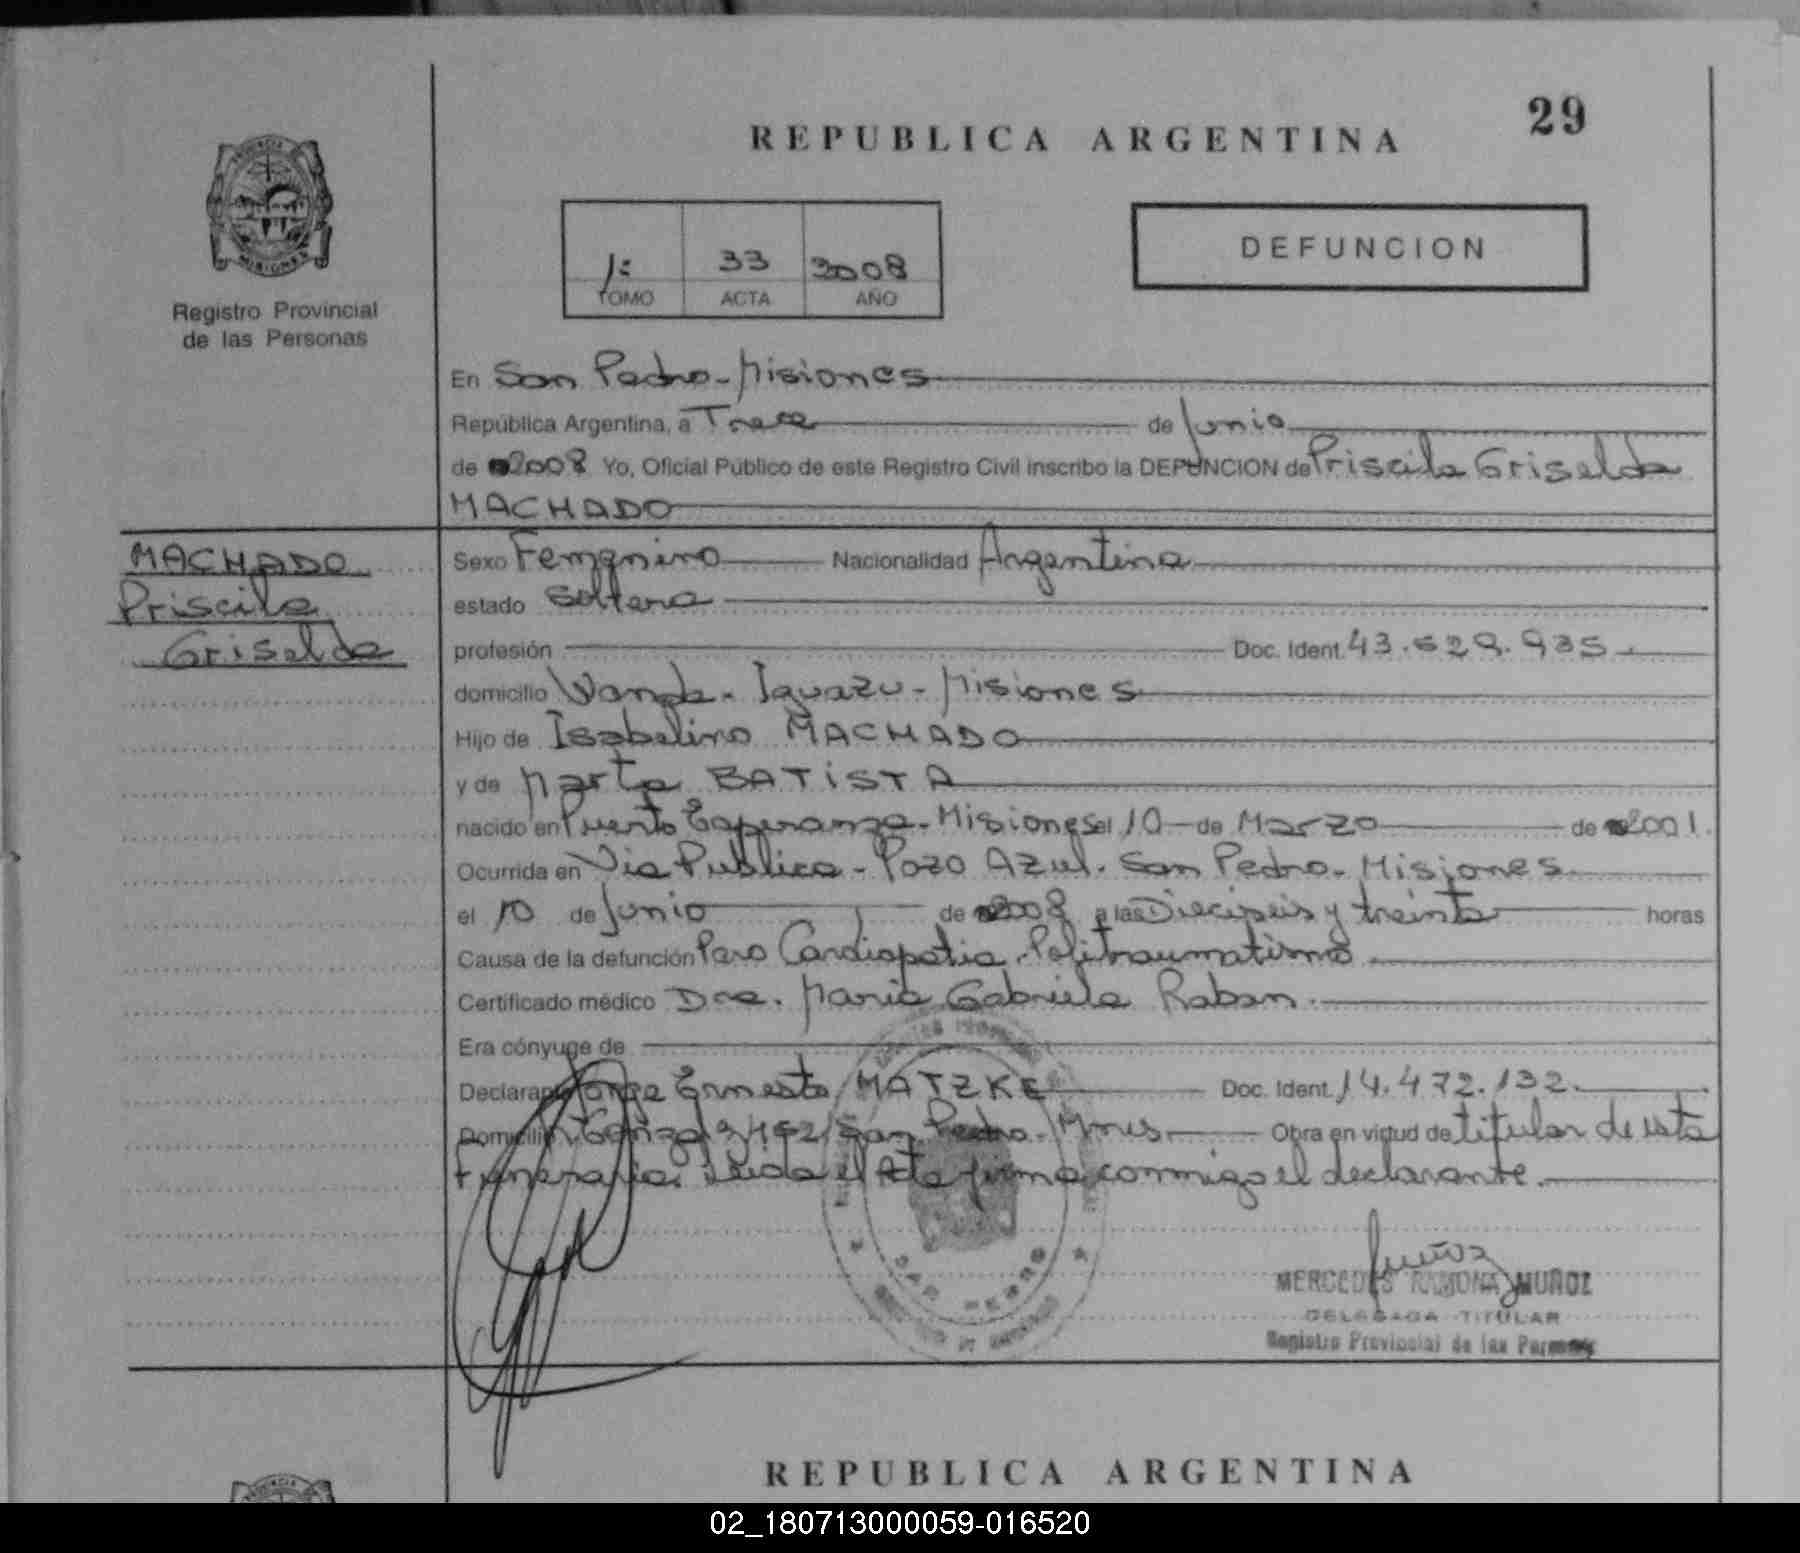 29
REPUBLICA ARGENTINA
DEFUNCION
1: 33 2008
TOMO ACTA AÑO
MISIONES
Registro Provincial
de las Personas
En San Pedro-Misiones
República Argentina, a Trece de Junio
de 2008 Yo, Oficial Público de este Registro Civil inscribo la DEFUNCION de Priscila Griselda
MACHADO
MACHADO
Priscila
Griselda
Sexo Femenino Nacionalidad Argentina
estado Soltera
profesión Doc. Ident. 43.629.935
domicilio Wanda-Iguazu-Misiones
Hijo de Isabelino MACHADO
y de Marta BATISTA
nacido en Puerto Esperanza-Misiones el 10 de Marzo de 2001.
Ocurrida en Via Publica-Pozo Azul. San Pedro-Misiones
el 10 de Junio de 2008 a las Dieciseis y treinta horas
Causa de la defunción Paro Cardiopatia-Politraumatismo.
Certificado médico Dra. Maria Gabriela Raban.
Era cónyuge de
Declarante Jorge Ernesto MATZKE Doc. Ident. 14.472.132.
Domicilio San Pedro-Mnes Obra en virtud de titular de esta
Funeraria. Leida el Acta firma conmigo el declarante.
SAN PEDRO
Muñoz
MERCEDES RAMONA MUÑOZ
DELEGADA TITULAR
Registro Provincial de las Personas
REPUBLICA ARGENTINA
02_180713000059-016520